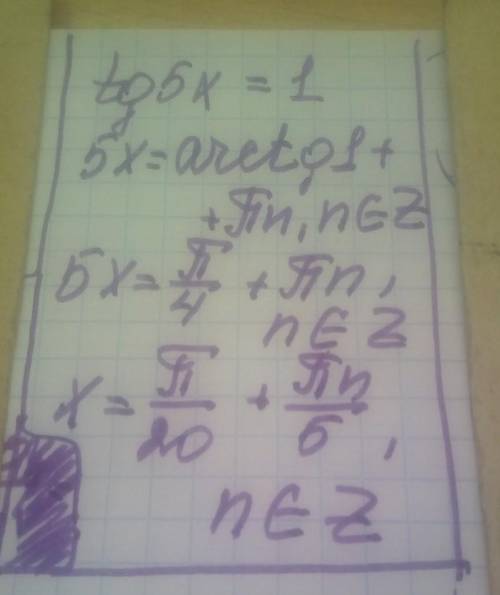 tg5x = 1
5x = arctg1 +
+ πn, n∈Z
5x = π/4 + πn,
n∈Z
x = π/20 + πn/5,
n∈Z